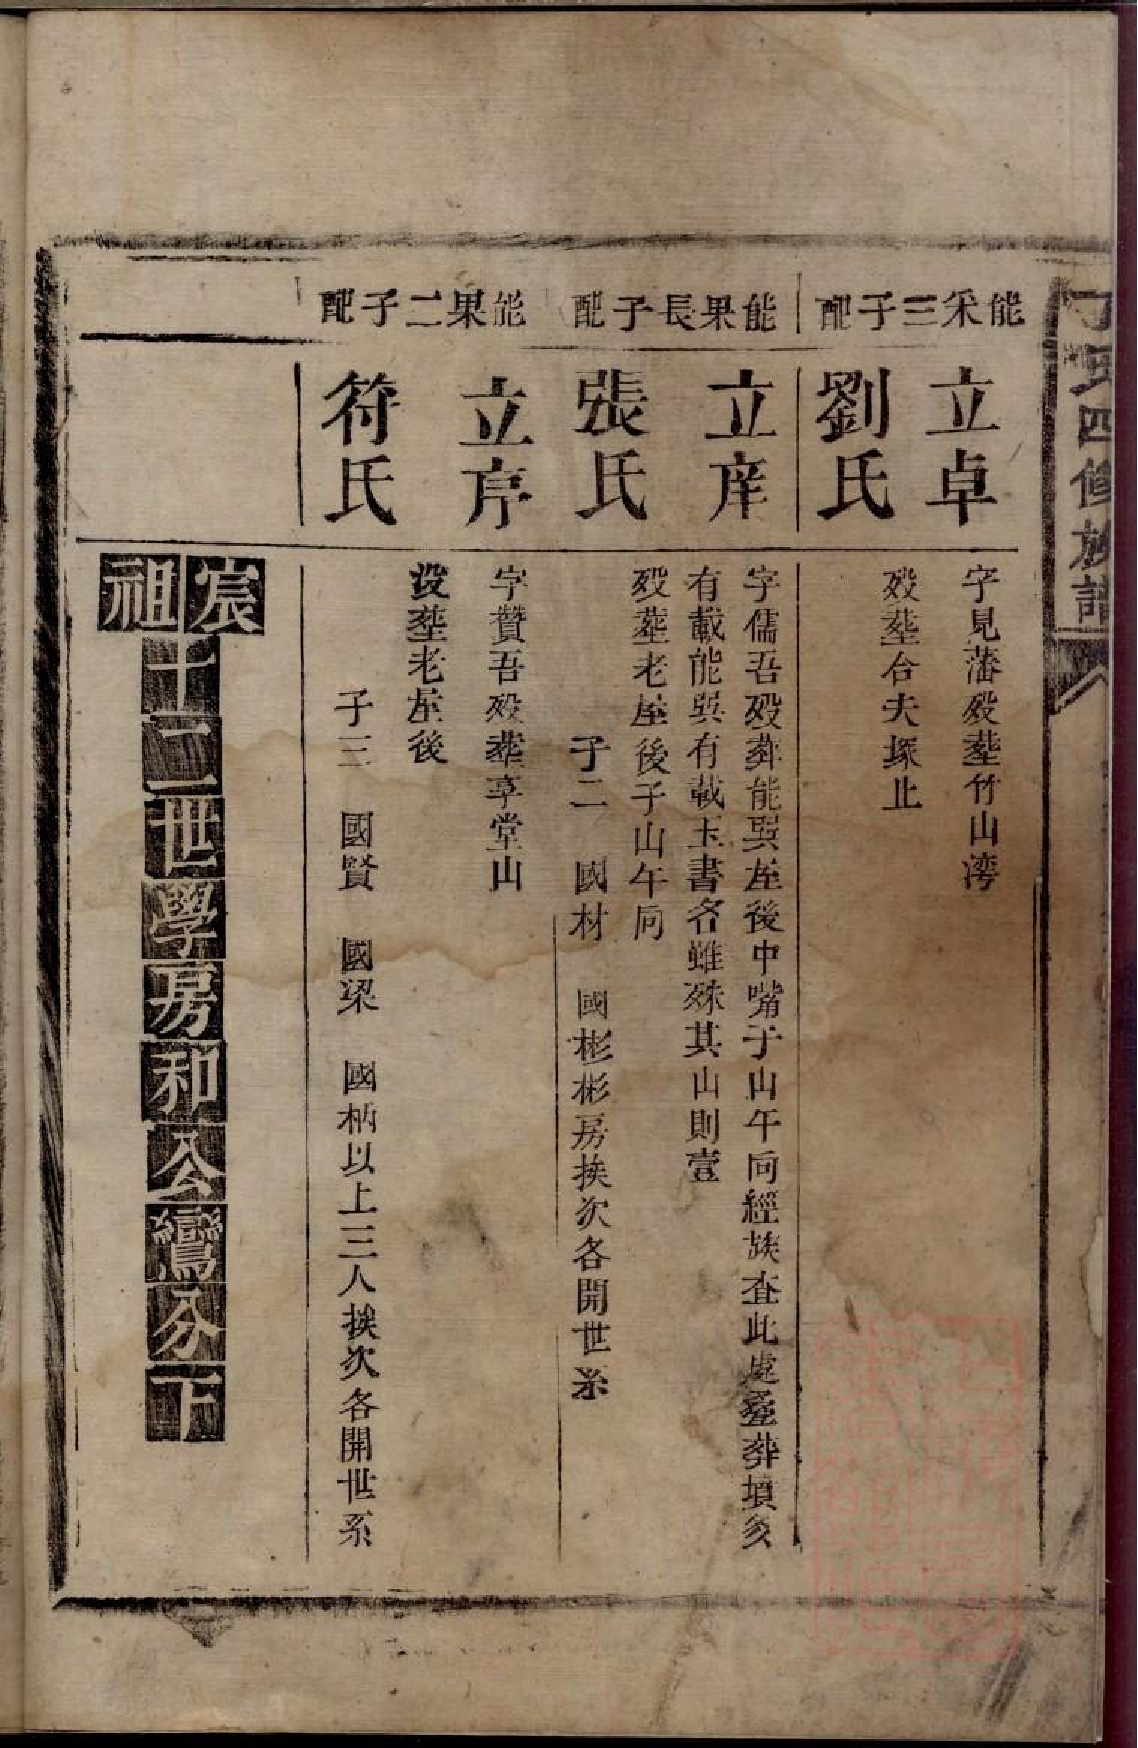 丁氏四修族譜
能采三子配
立卓
劉氏
字見藩歿塟竹山湾
歿塟合夫塚止
能果長子配
立庠
張氏
字儒吾歿葬能巽屋後中嘴子山午向經族查此處塟葬墳多
有載能巽有載玉書名雖殊其山則壹
歿塟老屋後子山午向
子二　國材　國彬彬房挨次各開世系
能果二子配
立序
符氏
字贊吾歿塟享堂山
没塟老屋後
子三　國賢　國梁　國柄以上三人挨次各開世系
宸祖十二世學房和公鸞分下